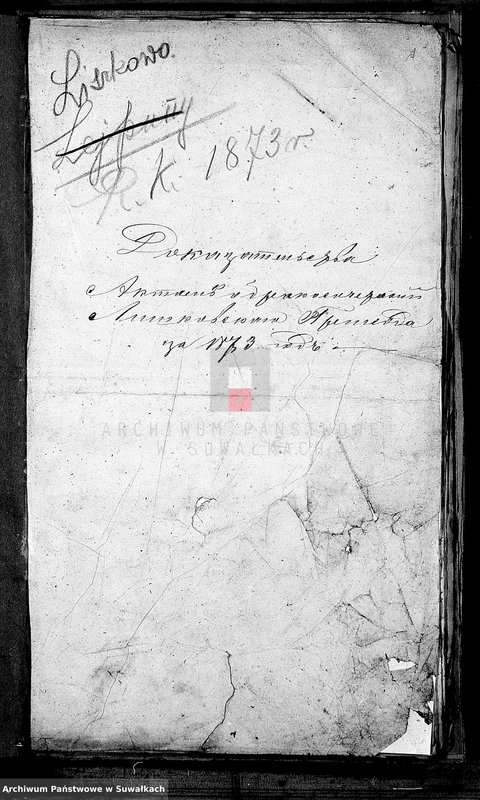 Liszkowo.
Lejpuny
R. k. 1873 r
Доказательства
Актамъ бракосочетаній
Лишковскаго Прихода
за 1873 годъ.
ARCHIWUM PAŃSTWOWE
W SUWAŁKACH
Archiwum Państwowe w Suwałkach